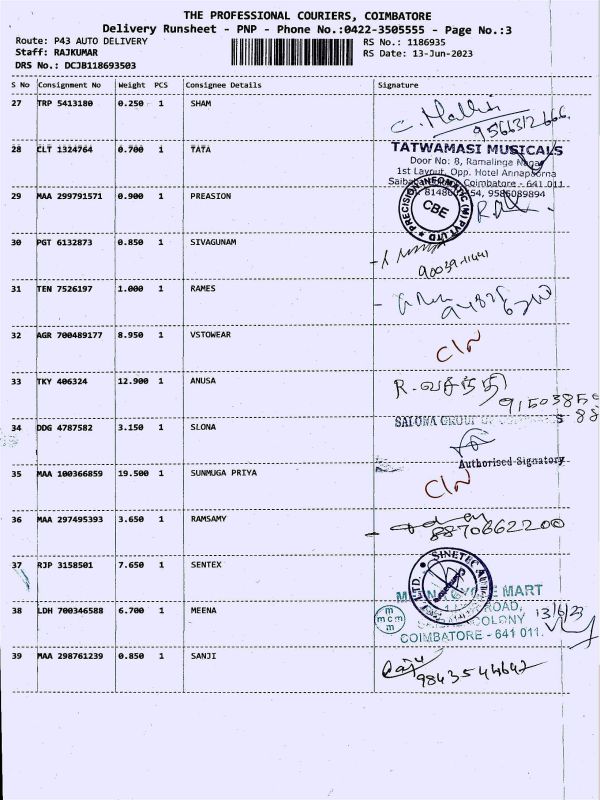 THE PROFESSIONAL COURIERS, COIMBATORE
Delivery Runsheet - PNP - Phone No.:0422-3505555 - Page No.:3
Route: P43 AUTO DELIVERY RS No.: 1186935
Staff: RAJKUMAR RS Date: 13-Jun-2023
DRS No.: DCJB118693503
S No Consignment No Weight PCS Consignee Details Signature
27 TRP 5413180 0.250 1 SHAM
9566312666
28 CLT 1324764 0.700 1 TATA TATWAMASI MUSICALS
Door No: 8, Ramalinga Nagar
1st Layout, Opp. Hotel Annapoorna
Coimbatore - 641 011
9585089894
29 MAA 299791571 0.900 1 PREASION
PRECISION INFOMATIC (M) PVT LTD
CBE
30 PGT 6132873 0.850 1 SIVAGUNAM
31 TEN 7526197 1.000 1 RAMES
32 AGR 700489177 8.950 1 VSTOWEAR
C/N
33 TKY 406324 12.900 1 ANUSA R. வசந்தி
34 DDG 4787582 3.150 1 SLONA SALONA GROUP
Authorised Signatory
35 MAA 100366859 19.500 1 SUNMUGA PRIYA C/N
36 MAA 297495393 3.650 1 RAMSAMY
8870662200
37 RJP 3158501 7.650 1 SENTEX
MART
ROAD,
38 LDH 700346588 6.700 1 MEENA mcm COLONY 13/6/23
COIMBATORE - 641 011.
39 MAA 298761239 0.850 1 SANJI
9843544642